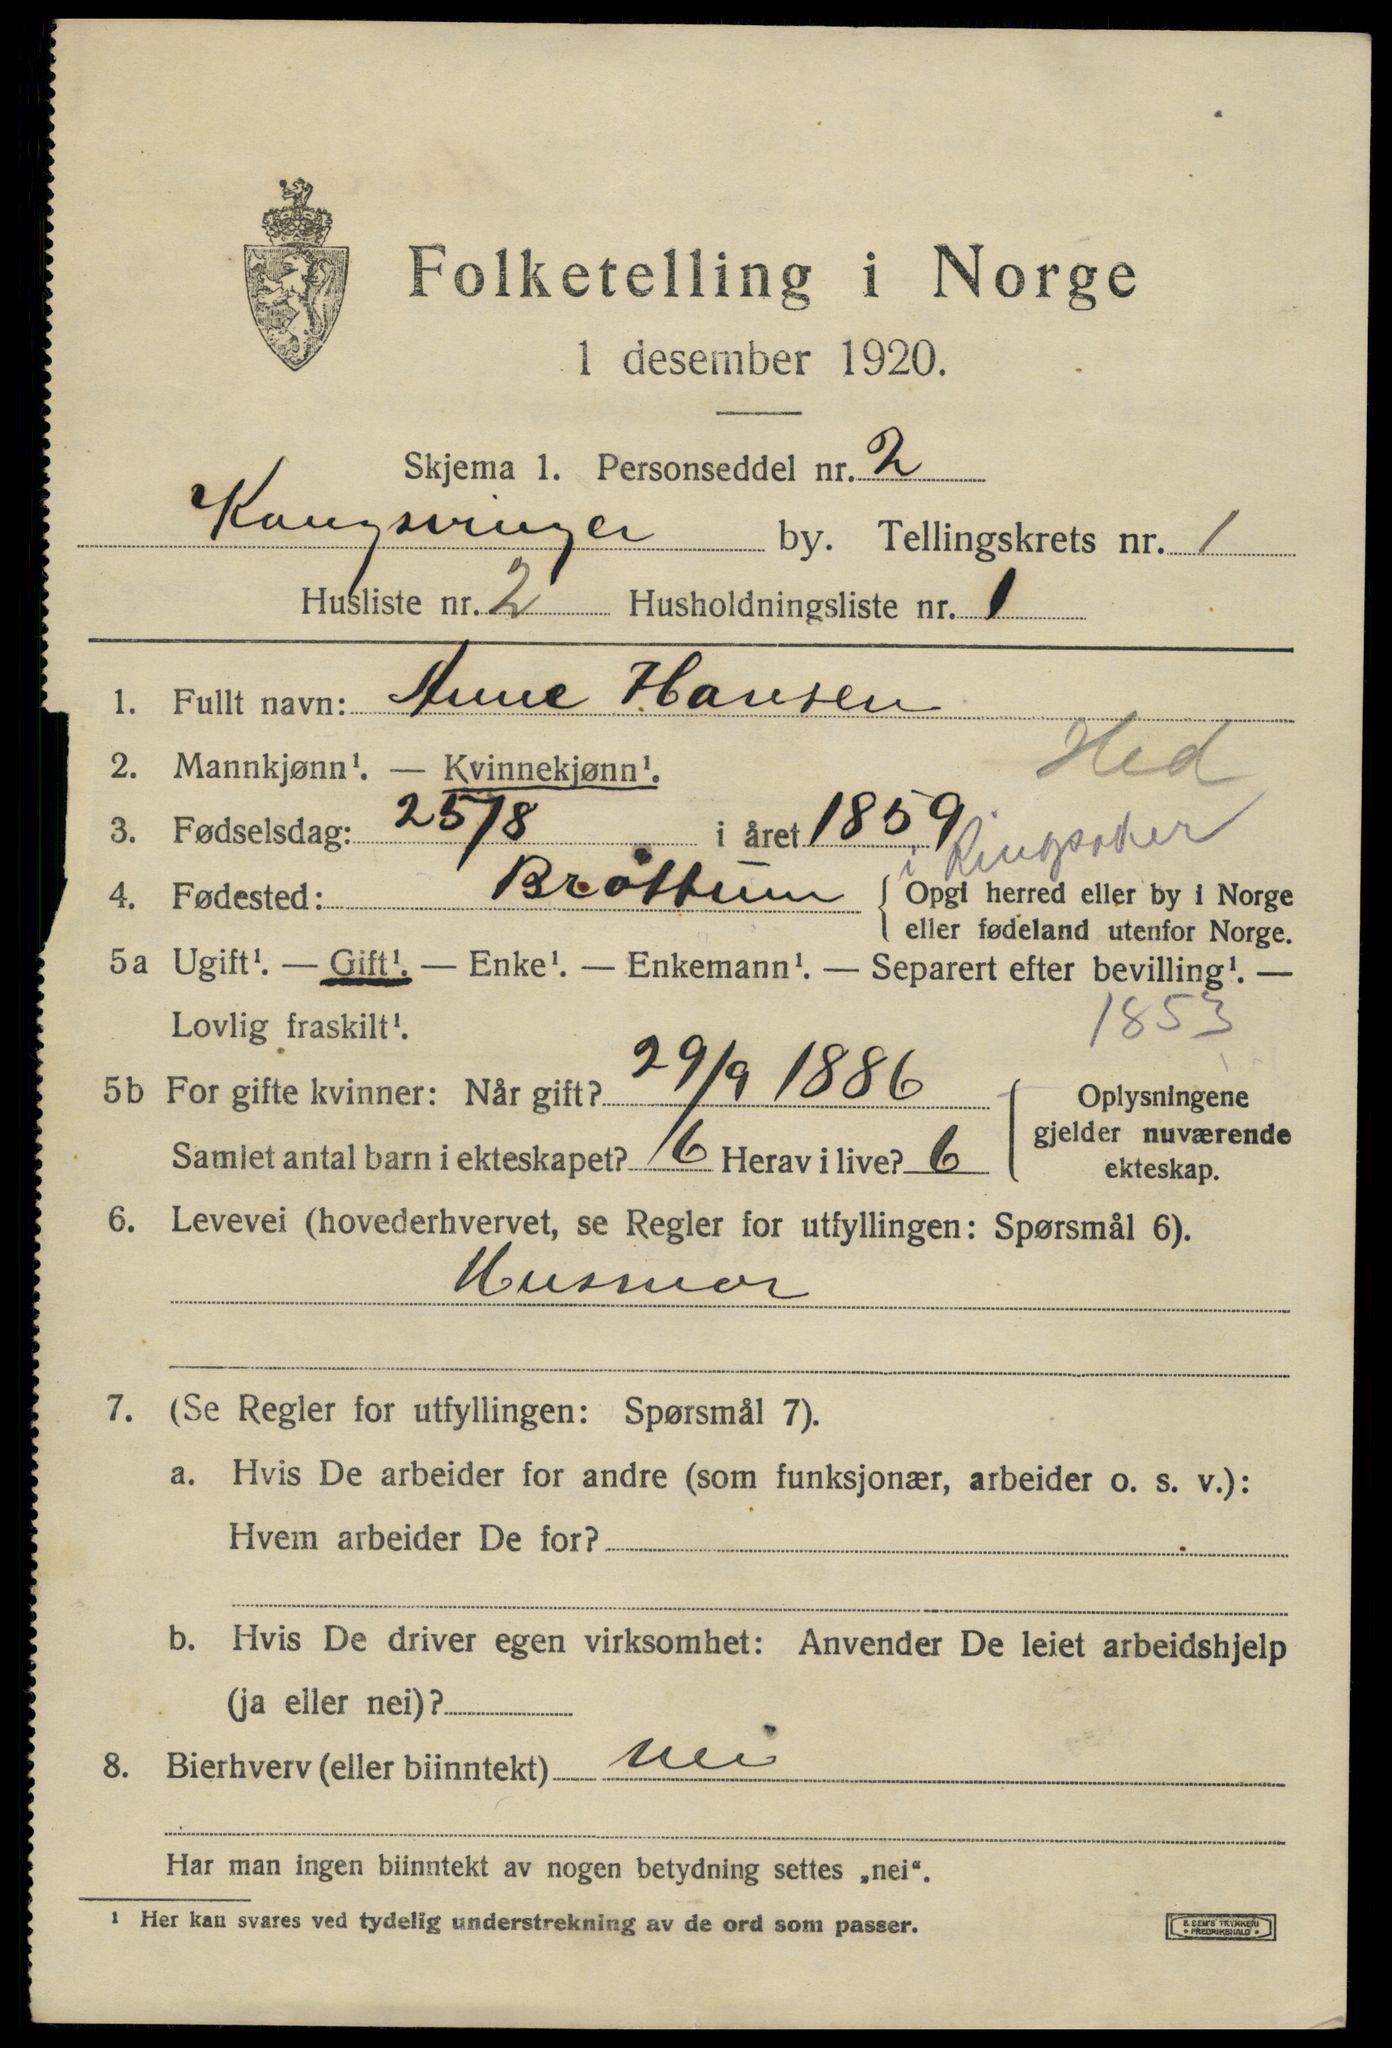 Folketelling i Norge
1 desember 1920.
Skjema 1. Personseddel nr. 2
Kongsvinger by. Tellingskrets nr. 1
Husliste nr. 2 Husholdningsliste nr. 1
1. Fullt navn: Anne Hansen
Hed
2. Mannkjønn¹. — Kvinnekjønn¹.
3. Fødselsdag: 25/8 i året 1859
i Ringsaker
4. Fødested: Brøttum { Opgi herred eller by i Norge
eller fødeland utenfor Norge.
5a Ugift¹. — Gift¹. — Enke¹. — Enkemann¹. — Separert efter bevilling¹. —
Lovlig fraskilt¹.
1853
5b For gifte kvinner: Når gift? 29/9 1886
Samlet antal barn i ekteskapet? 6 Herav i live? 6
Oplysningene
gjelder nuværende
ekteskap.
6. Levevei (hovederhvervet, se Regler for utfyllingen: Spørsmål 6).
Husmor
7. (Se Regler for utfyllingen: Spørsmål 7).
a. Hvis De arbeider for andre (som funksjonær, arbeider o. s. v.):
Hvem arbeider De for?
b. Hvis De driver egen virksomhet: Anvender De leiet arbeidshjelp
(ja eller nei)?
8. Bierhverv (eller biinntekt) nei
Har man ingen biinntekt av nogen betydning settes „nei“.
¹ Her kan svares ved tydelig understrekning av de ord som passer.
E. SEM'S TRYKKERI
• FREDRIKSHALD •